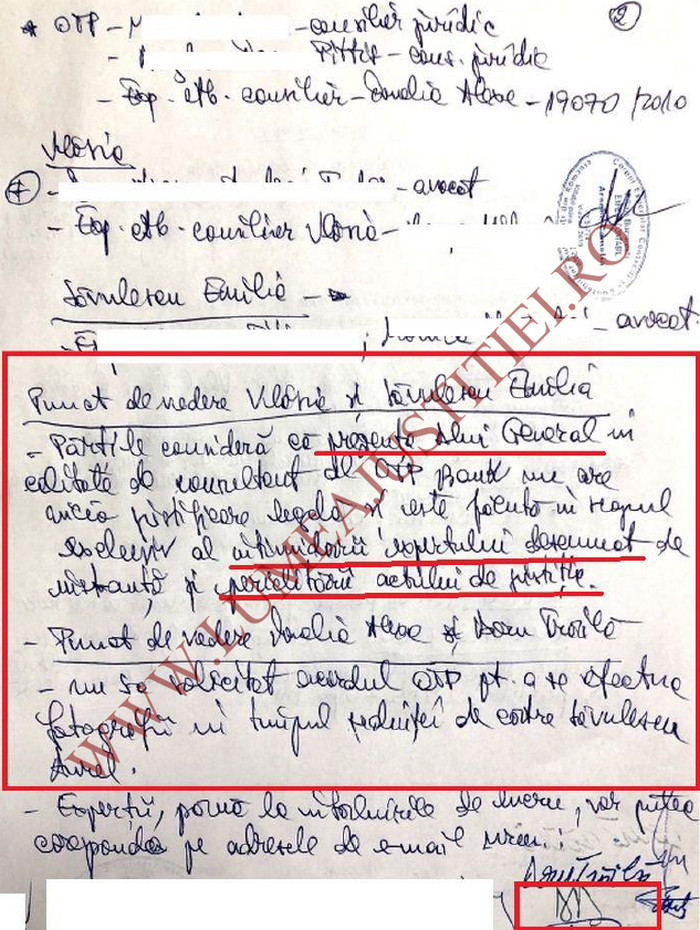 * OTP - M - consilier juridic ②
- - cons. juridic
- Exp. ctb. consilier - Amalia Alexe - 19070 / 2010
Vlăsia
- - avocat
- Exp. ctb. consilier Vlăsia -
Săvulescu Emilia -
- ; - avocat.
Punct de vedere Vlăsia și Săvulescu Emilia
- Părțile consideră că prezența dlui General in
calitate de consultant de OTP Bank nu are
nicio justificare legală și este făcută in scopul
exclusiv al intimidării expertului desemnat de
instanță și periclitării actului de justiție.
- Punct de vedere Alexe &
- nu s-a solicitat acordul OTP pt. a se efectua
fotografii in timpul ședinței de către Săvulescu
Aurel.
- Experții, până la intâlnirile de lucru, vor putea
coresponda pe adresele de email
WWW.LUMEAJUSTITIEI.RO